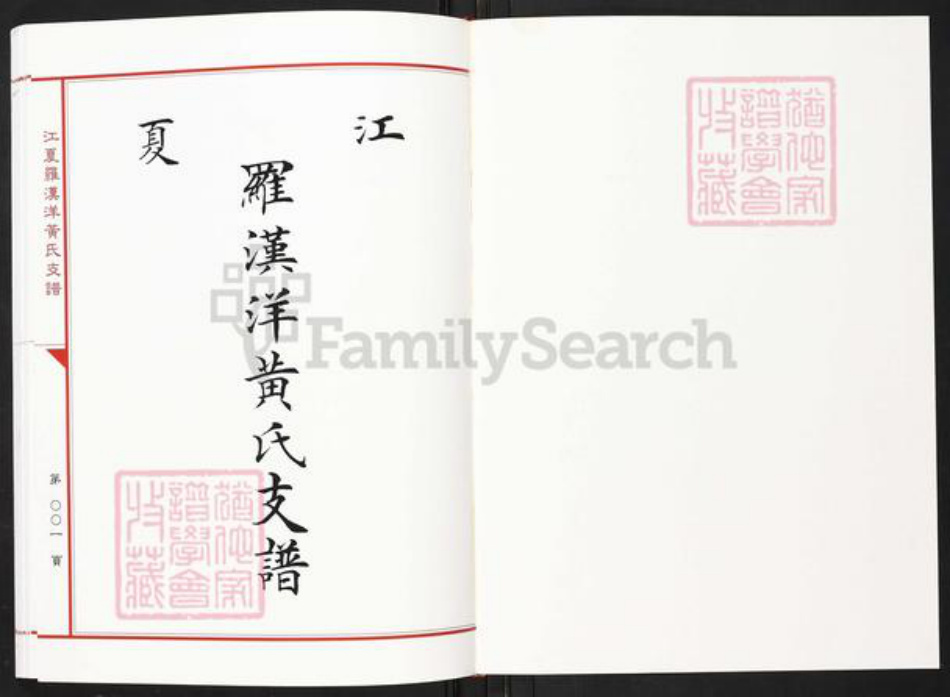 江夏
羅漢洋黃氏支譜
江夏羅漢洋黃氏支譜
第〇〇一頁
猶他家
譜學會
收藏
猶他家
譜學會
收藏
FamilySearch